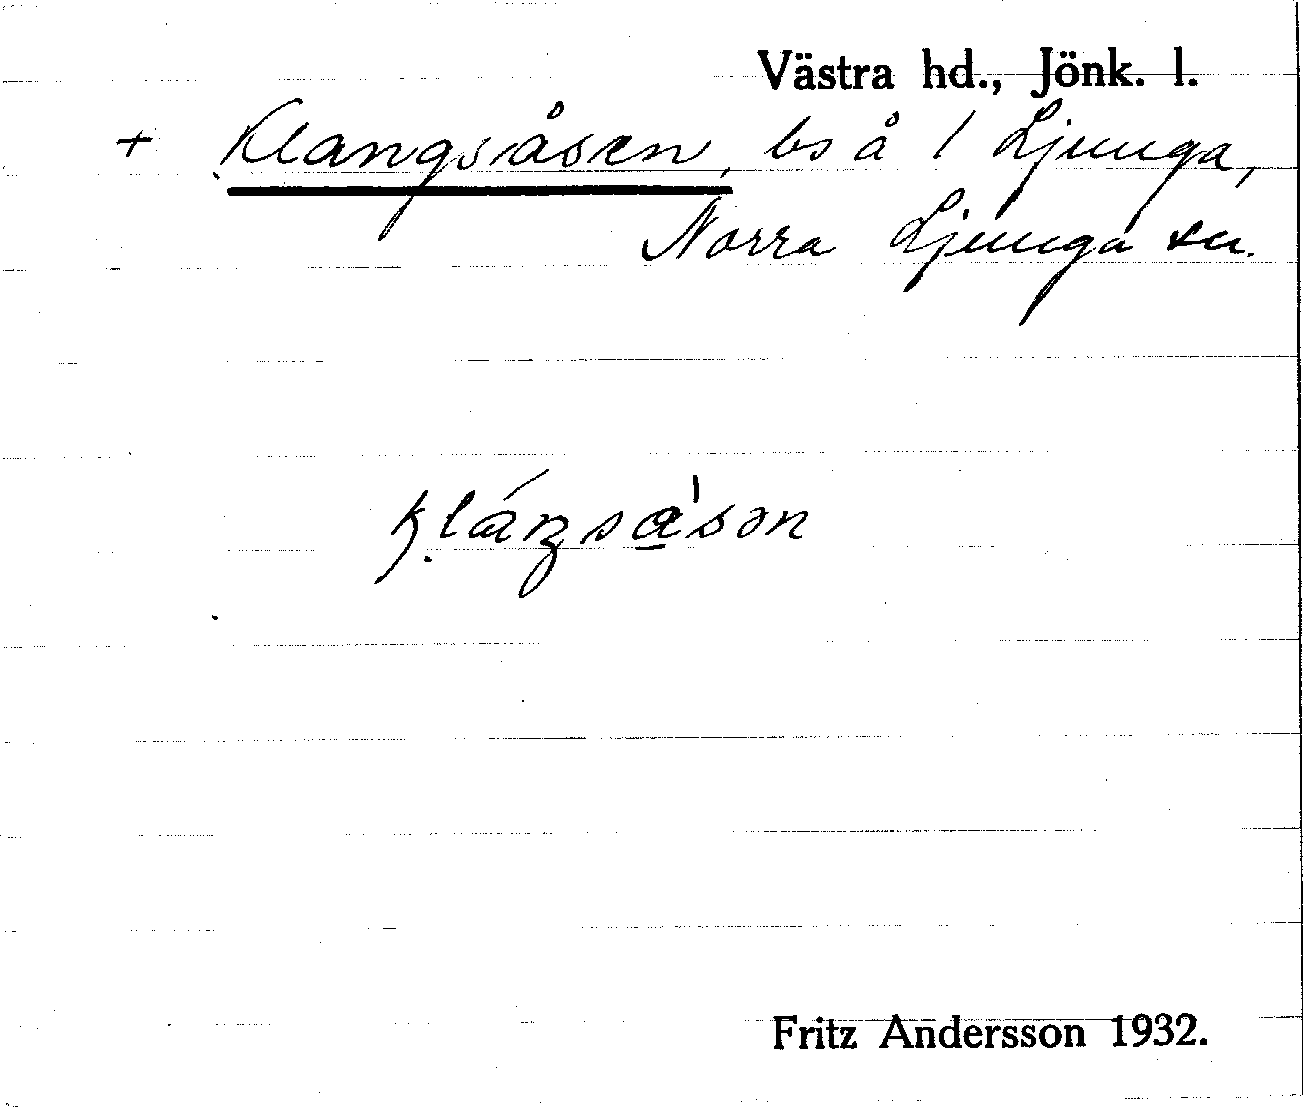 Västra hd., Jönk. l.
+ Klangsåsen, bs å / Ljunga,
Norra Ljunga sn.
Fritz Andersson 1932.